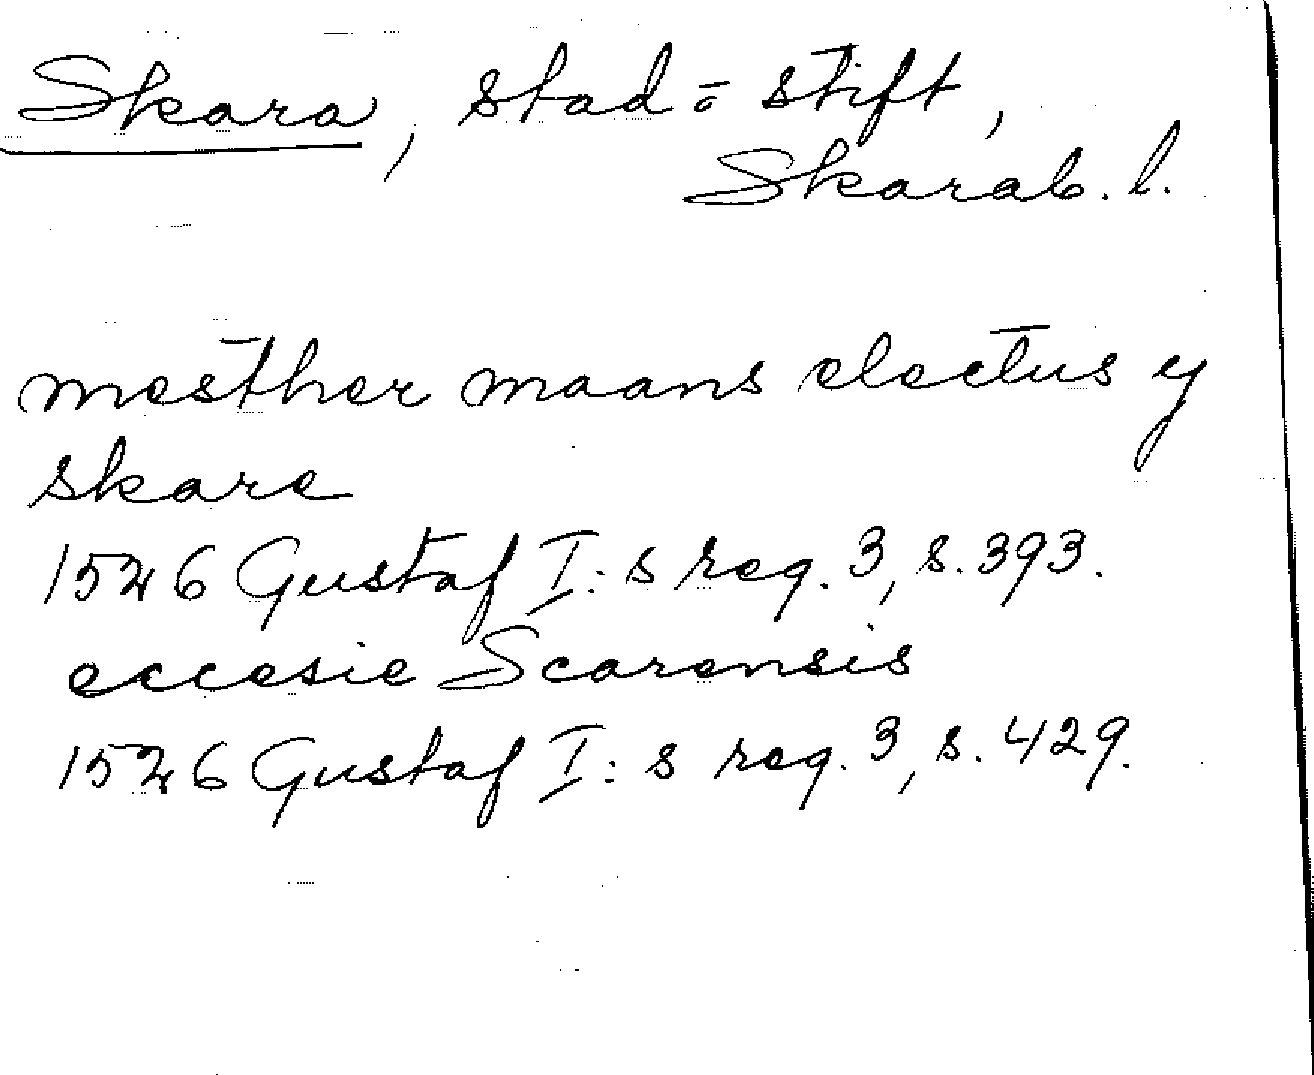 Skara, stad o stift,
Skarab. l.
mesther maans electus y
skare
1526 Gustaf I:s reg. 3, s. 393.
eccesie Scarensis
1526 Gustaf I:s reg. 3, s. 429.